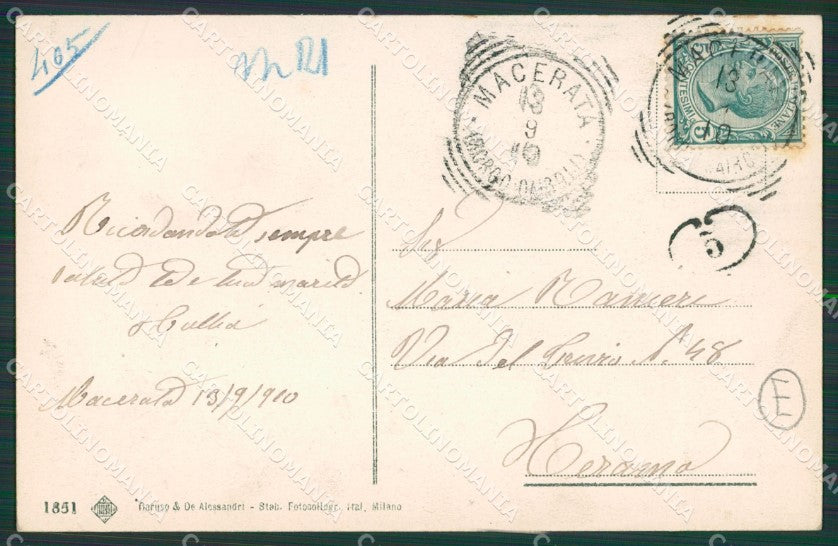 405
MACERATA
13
9
10
MACERATA
13
10
5
Ricordandoti sempre
saluto te e tuo marito
Macerata 13/9/910
Maria Ranieri
Via Del N. 48
Teramo
E
1851
Caruso & De Alessandri - Stab. Fotocollogr. Ital. Milano
CARTOLINOMANIA